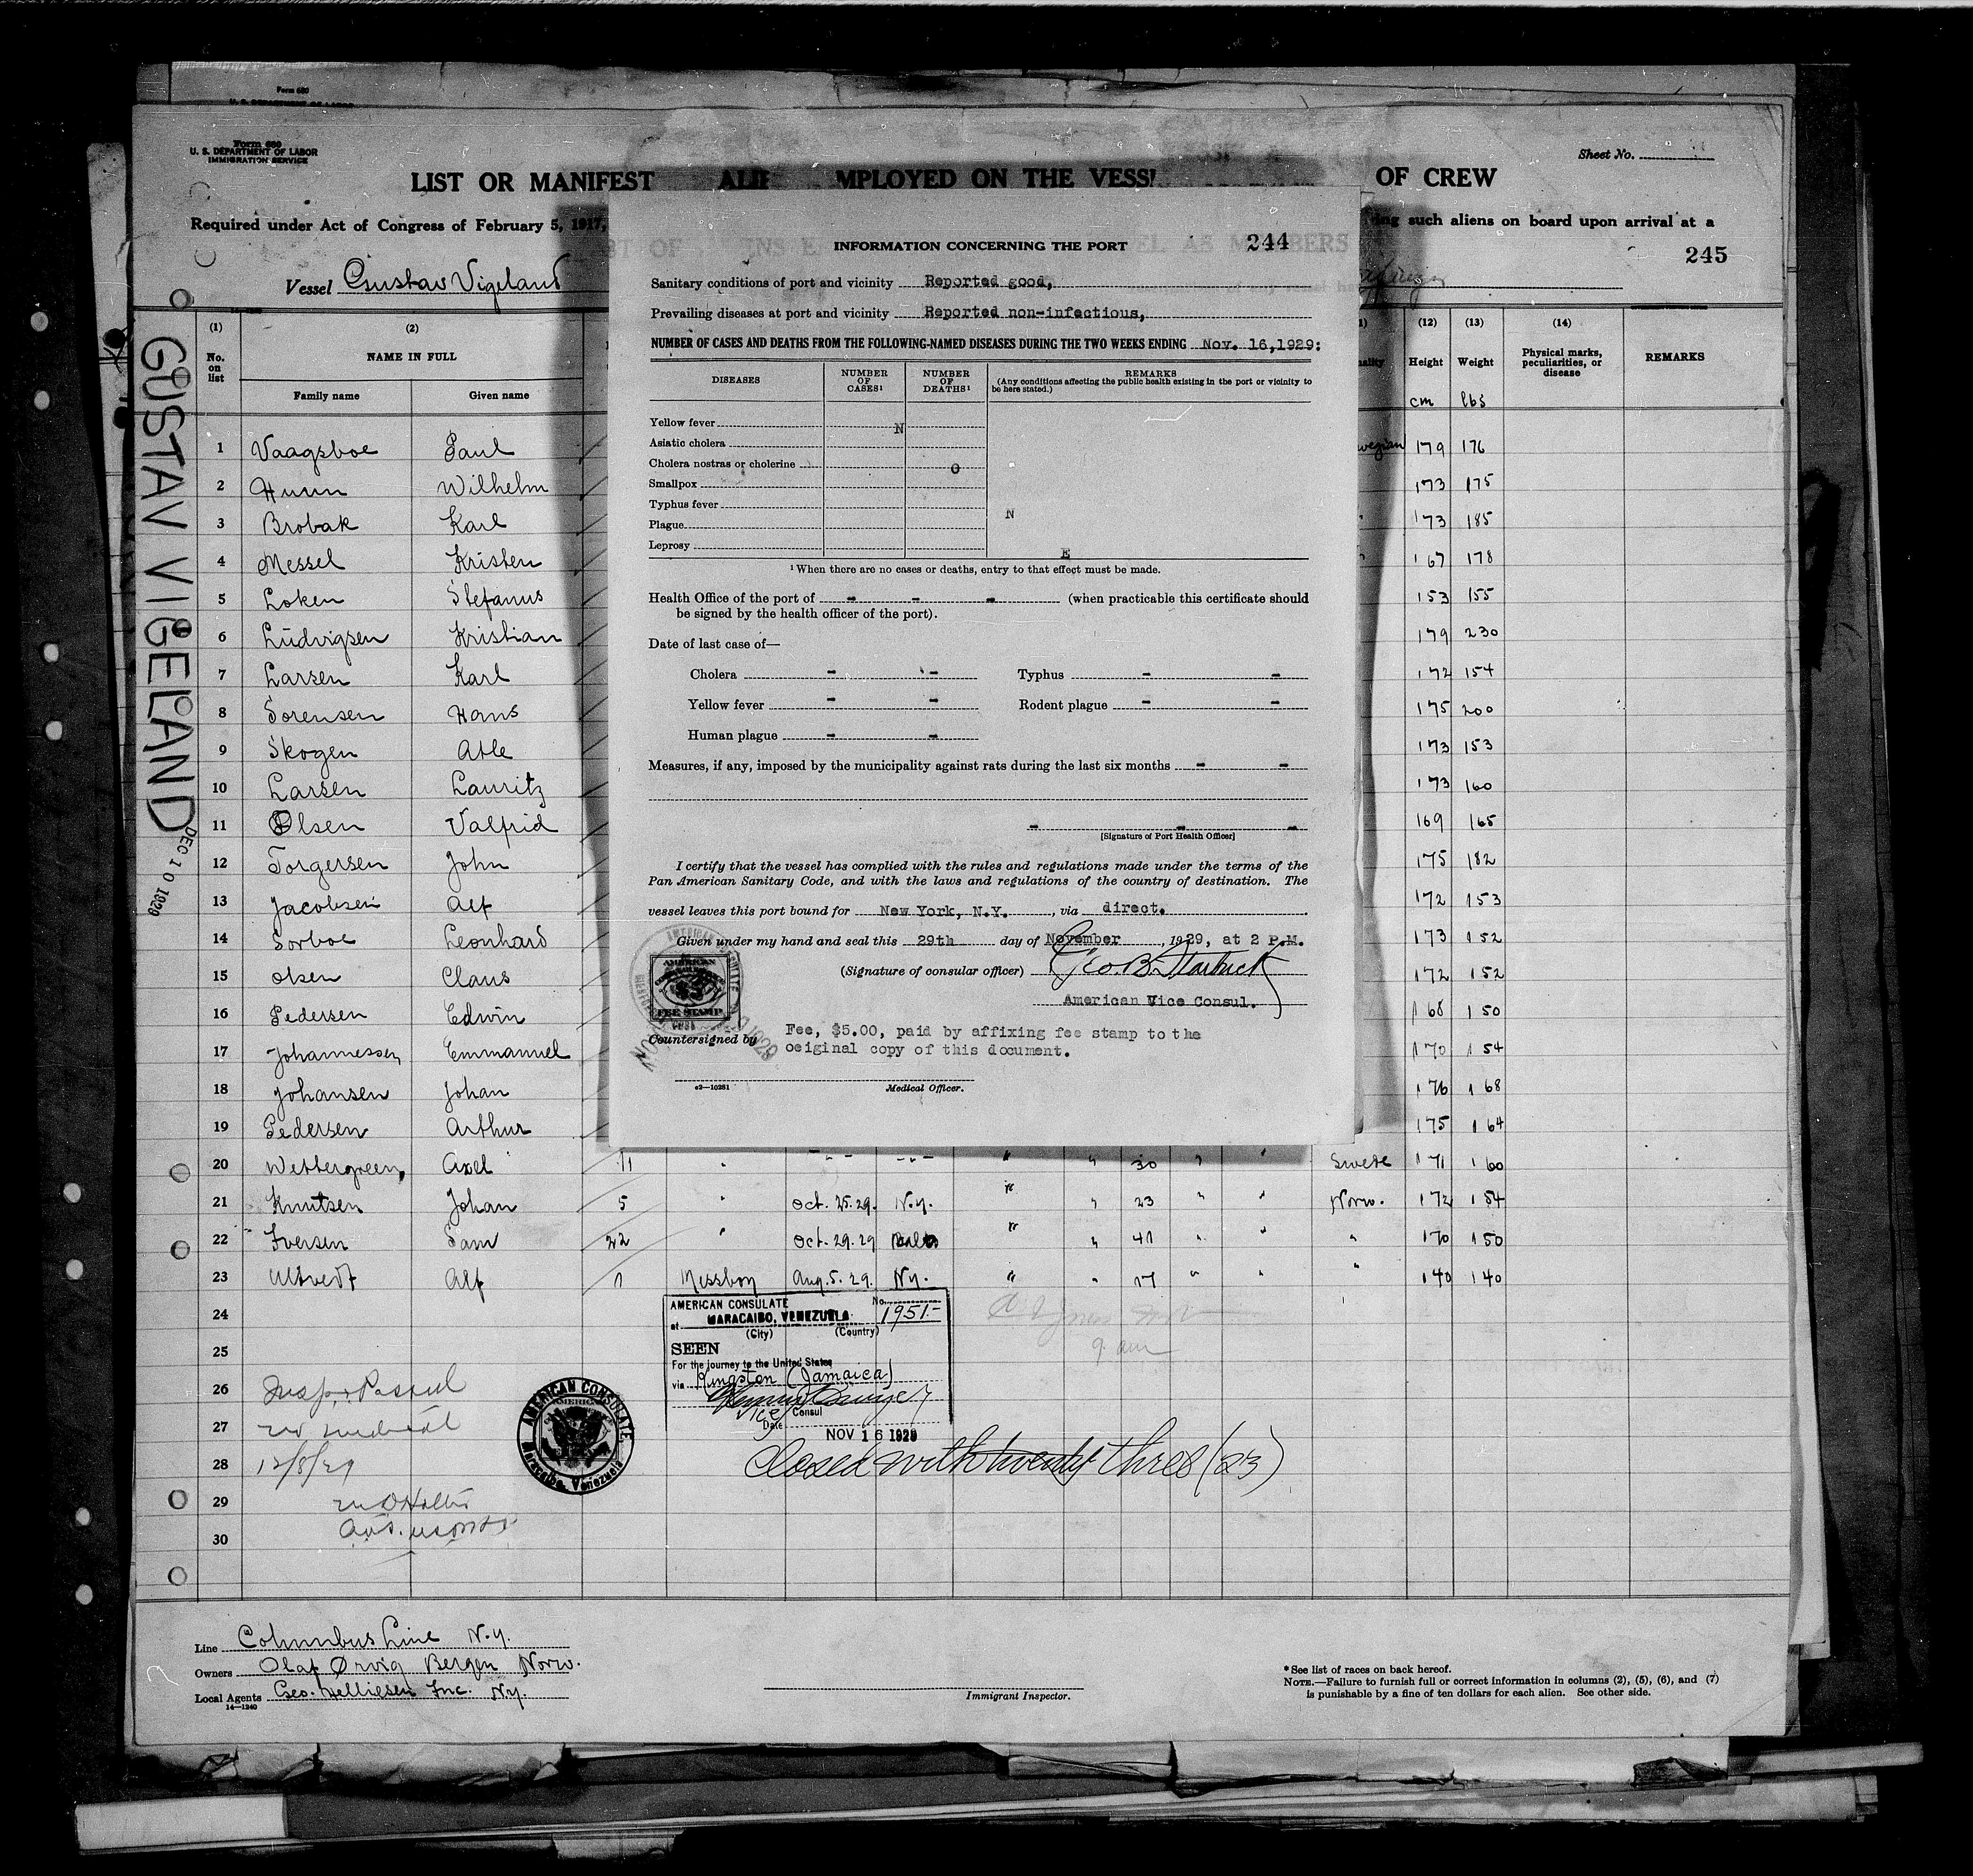 Form 680
U. S. DEPARTMENT OF LABOR
Form 680
U. S. DEPARTMENT OF LABOR
IMMIGRATION SERVICE
Sheet No.
LIST OR MANIFEST ALIE MPLOYED ON THE VESS OF CREW
Required under Act of Congress of February 5, 1917, ing such aliens on board upon arrival at a
245
Vessel Gustav Vigeland
GUSTAV VIGELAND
DEC 10 1929
INFORMATION CONCERNING THE PORT 244
Sanitary conditions of port and vicinity Reported good,
Prevailing diseases at port and vicinity Reported non-infectious,
NUMBER OF CASES AND DEATHS FROM THE FOLLOWING-NAMED DISEASES DURING THE TWO WEEKS ENDING Nov. 16,1929:
DISEASES NUMBER OF CASES¹ NUMBER OF DEATHS¹ REMARKS
(Any conditions affecting the public health existing in the port or vicinity to be here stated.)
Yellow fever N
Asiatic cholera
Cholera nostras or cholerine O
Smallpox
Typhus fever
Plague N
Leprosy E
¹ When there are no cases or deaths, entry to that effect must be made.
Health Office of the port of - - - (when practicable this certificate should
be signed by the health officer of the port).
Date of last case of—
Cholera - - Typhus - -
Yellow fever - - Rodent plague - -
Human plague - -
Measures, if any, imposed by the municipality against rats during the last six months - -
- - -
[Signature of Port Health Officer]
I certify that the vessel has complied with the rules and regulations made under the terms of the
Pan American Sanitary Code, and with the laws and regulations of the country of destination. The
vessel leaves this port bound for New York, N.Y. , via direct.
Given under my hand and seal this 29th day of November , 1929, at 2 P.M.
(Signature of consular officer) Geo. B. Starbuck
American Vice Consul.
AMERICAN
FEE STAMP
Countersigned by
Fee, $5.00, paid by affixing fee stamp to the
oeiginal copy of this document.
c2—10281 Medical Officer.
(1) (2) (12) (13) (14)
No. on list NAME IN FULL Height Weight Physical marks, peculiarities, or disease REMARKS
Family name Given name cm lbs
1 Vaagsboe Paul wegian 179 176
2 Huun Wilhelm 173 175
3 Brobak Karl 173 185
4 Messel Kristen 167 178
5 Loken Stefanus 153 155
6 Ludvigsen Kristian 179 230
7 Larsen Karl 172 154
8 Sorensen Hans 175 200
9 Skogen Atle 173 153
10 Larsen Lauritz 173 160
11 Olsen Valfrid 169 165
12 Torgersen John 175 182
13 Jacobsen Alf 172 153
14 Sorboe Leonhard 173 152
15 Olsen Claus 172 152
16 Pedersen Edwin 168 150
17 Johannessen Emmanuel 170 154
18 Johansen Johan 176 168
19 Pedersen Arthur 175 164
20 Wettergreen, Axel 11 " " " 30 " " Swede 171 160
21 Knutsen Johan 5 " Oct. 25.29. N.y. " " 23 " " Norw. 172 154
22 Iversen Sam 22 " Oct. 29.29 Balto " " 41 " " " 170 150
23 Ultvedt Alf 1 Messboy Aug. 5. 29. Ny. " " 17 " " " 140 140
24
25
26
27
28
29
30
9 am
AMERICAN CONSULATE No. 1951-
at MARACAIBO, VENEZUELA
(City) (Country)
SEEN
For the journey to the United States
via Kingston (Jamaica)
Vice Consul
Date NOV 16 1929
AMERICAN CONSULATE
Maracaibo, Venezuela
Closed with twenty three (23)
12/8/29
Line Columbus Line N.y.
Owners Olaf Ørvig Bergen Norw.
Local Agents Geo. Helliesen Inc. Ny.
14—1240
Immigrant Inspector.
* See list of races on back hereof.
NOTE.—Failure to furnish full or correct information in columns (2), (5), (6), and (7)
is punishable by a fine of ten dollars for each alien. See other side.